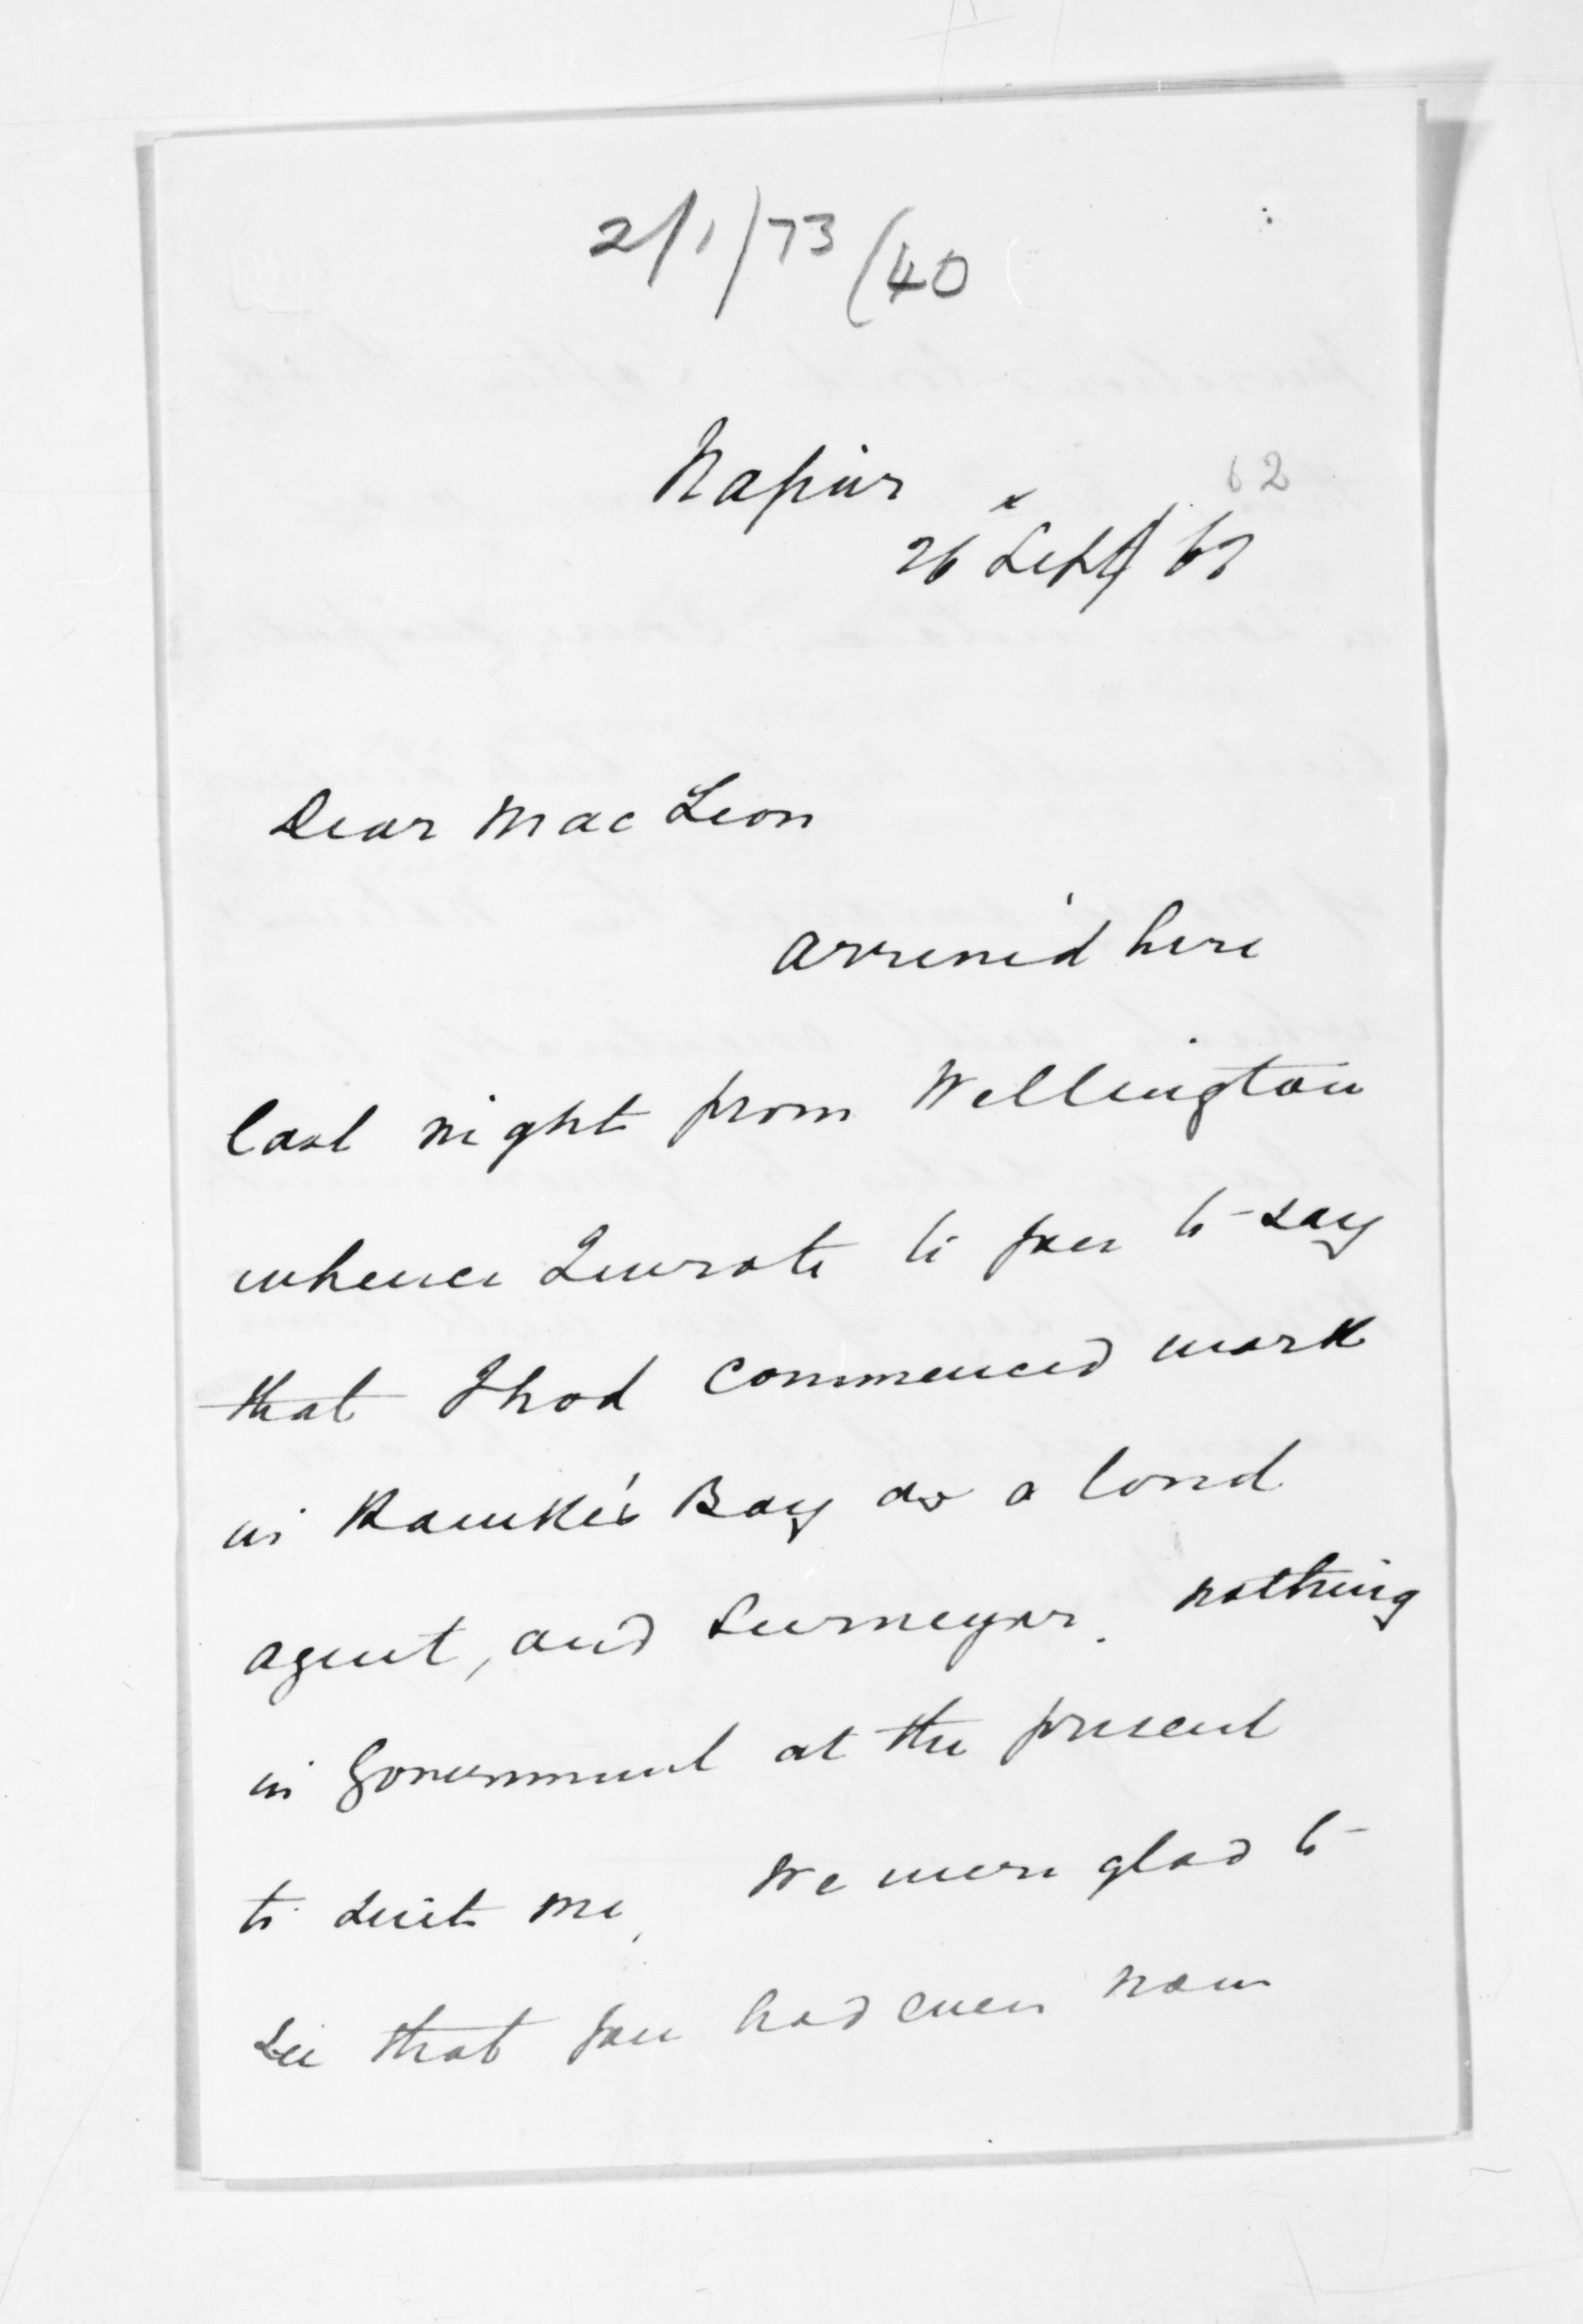 2/1/73/40
Napier
62
26 Sept 62
Dear Mac Lean
arrived here
last night from Wellington
whence I wrote to you to say
that I had commenced work
in Hawke's Bay as a land
agent, and Surveyor. nothing
in Government at the present
to suit me, We were glad to
see that you had even now